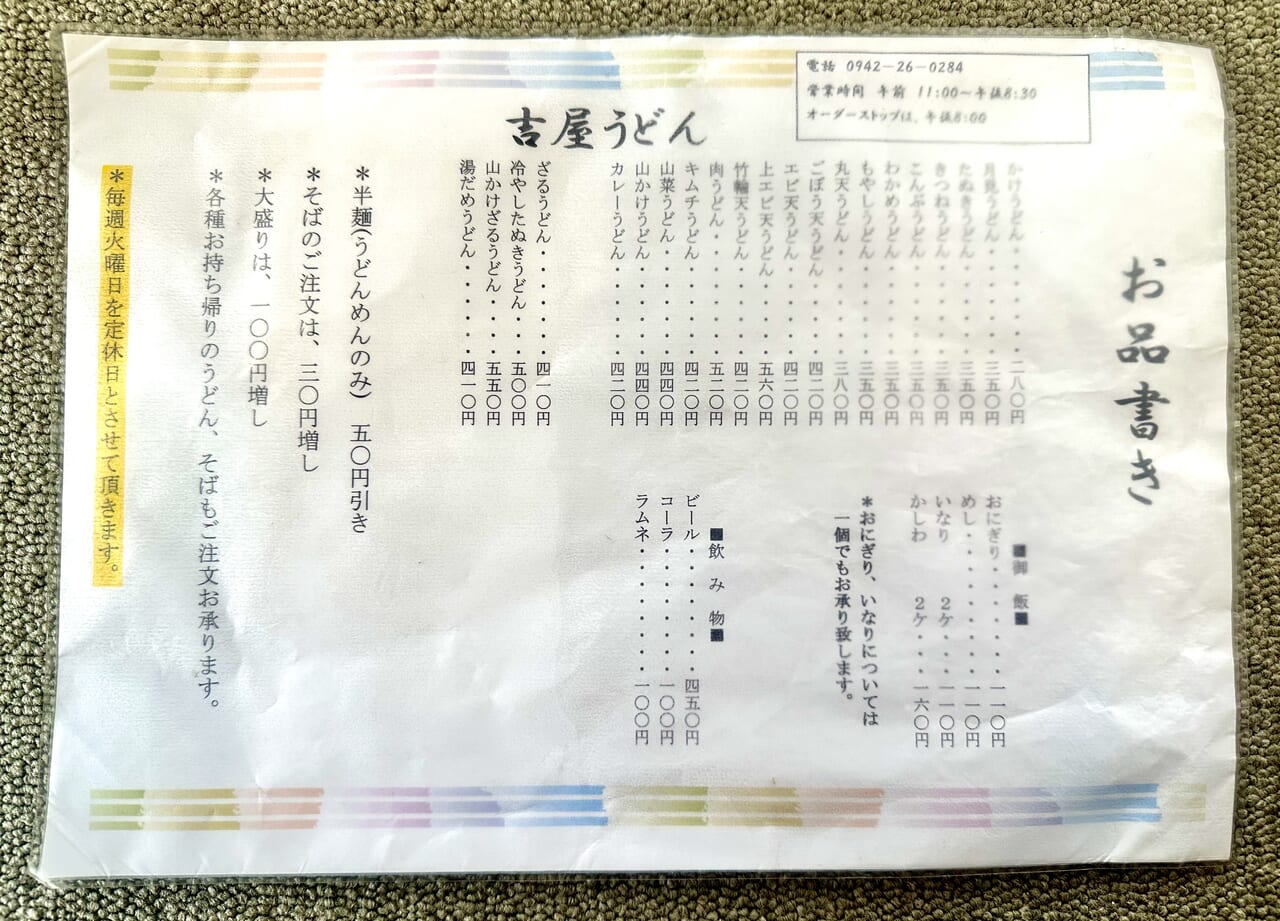 電話 0942-26-0284
営業時間 午前 11:00~午後8:30
オーダーストップは、午後8:00
吉屋うどん
お品書き
かけうどん・・・・・・二八〇円
月見うどん・・・・・・三五〇円
たぬきうどん・・・・・三五〇円
きつねうどん・・・・・三五〇円
こんぶうどん・・・・・三五〇円
わかめうどん・・・・・三五〇円
もやしうどん・・・・・三五〇円
丸天うどん・・・・・・三八〇円
ごぼう天うどん・・・・四二〇円
エビ天うどん・・・・・四二〇円
上エビ天うどん・・・・五六〇円
竹輪天うどん・・・・・四二〇円
肉うどん・・・・・・・五二〇円
キムチうどん・・・・・四二〇円
山菜うどん・・・・・・四四〇円
山かけうどん・・・・・四四〇円
カレーうどん・・・・・四二〇円
ざるうどん・・・・・・四一〇円
冷やしたぬきうどん・・・五〇〇円
山かけざるうどん・・・・五五〇円
湯だめうどん・・・・・四一〇円
■御飯■
おにぎり・・・・・・一一〇円
めし・・・・・・・・一一〇円
いなり 2ケ・・・一一〇円
かしわ 2ケ・・・一六〇円
*おにぎり、いなりについては
一個でもお承り致します。
■飲み物■
ビール・・・・・・・四五〇円
コーラ・・・・・・・一〇〇円
ラムネ・・・・・・・一〇〇円
*半麺(うどんめんのみ) 五〇円引き
*そばのご注文は、三〇円増し
*大盛りは、一〇〇円増し
*各種お持ち帰りのうどん、そばもご注文お承ります。
*毎週火曜日を定休日とさせて頂きます。